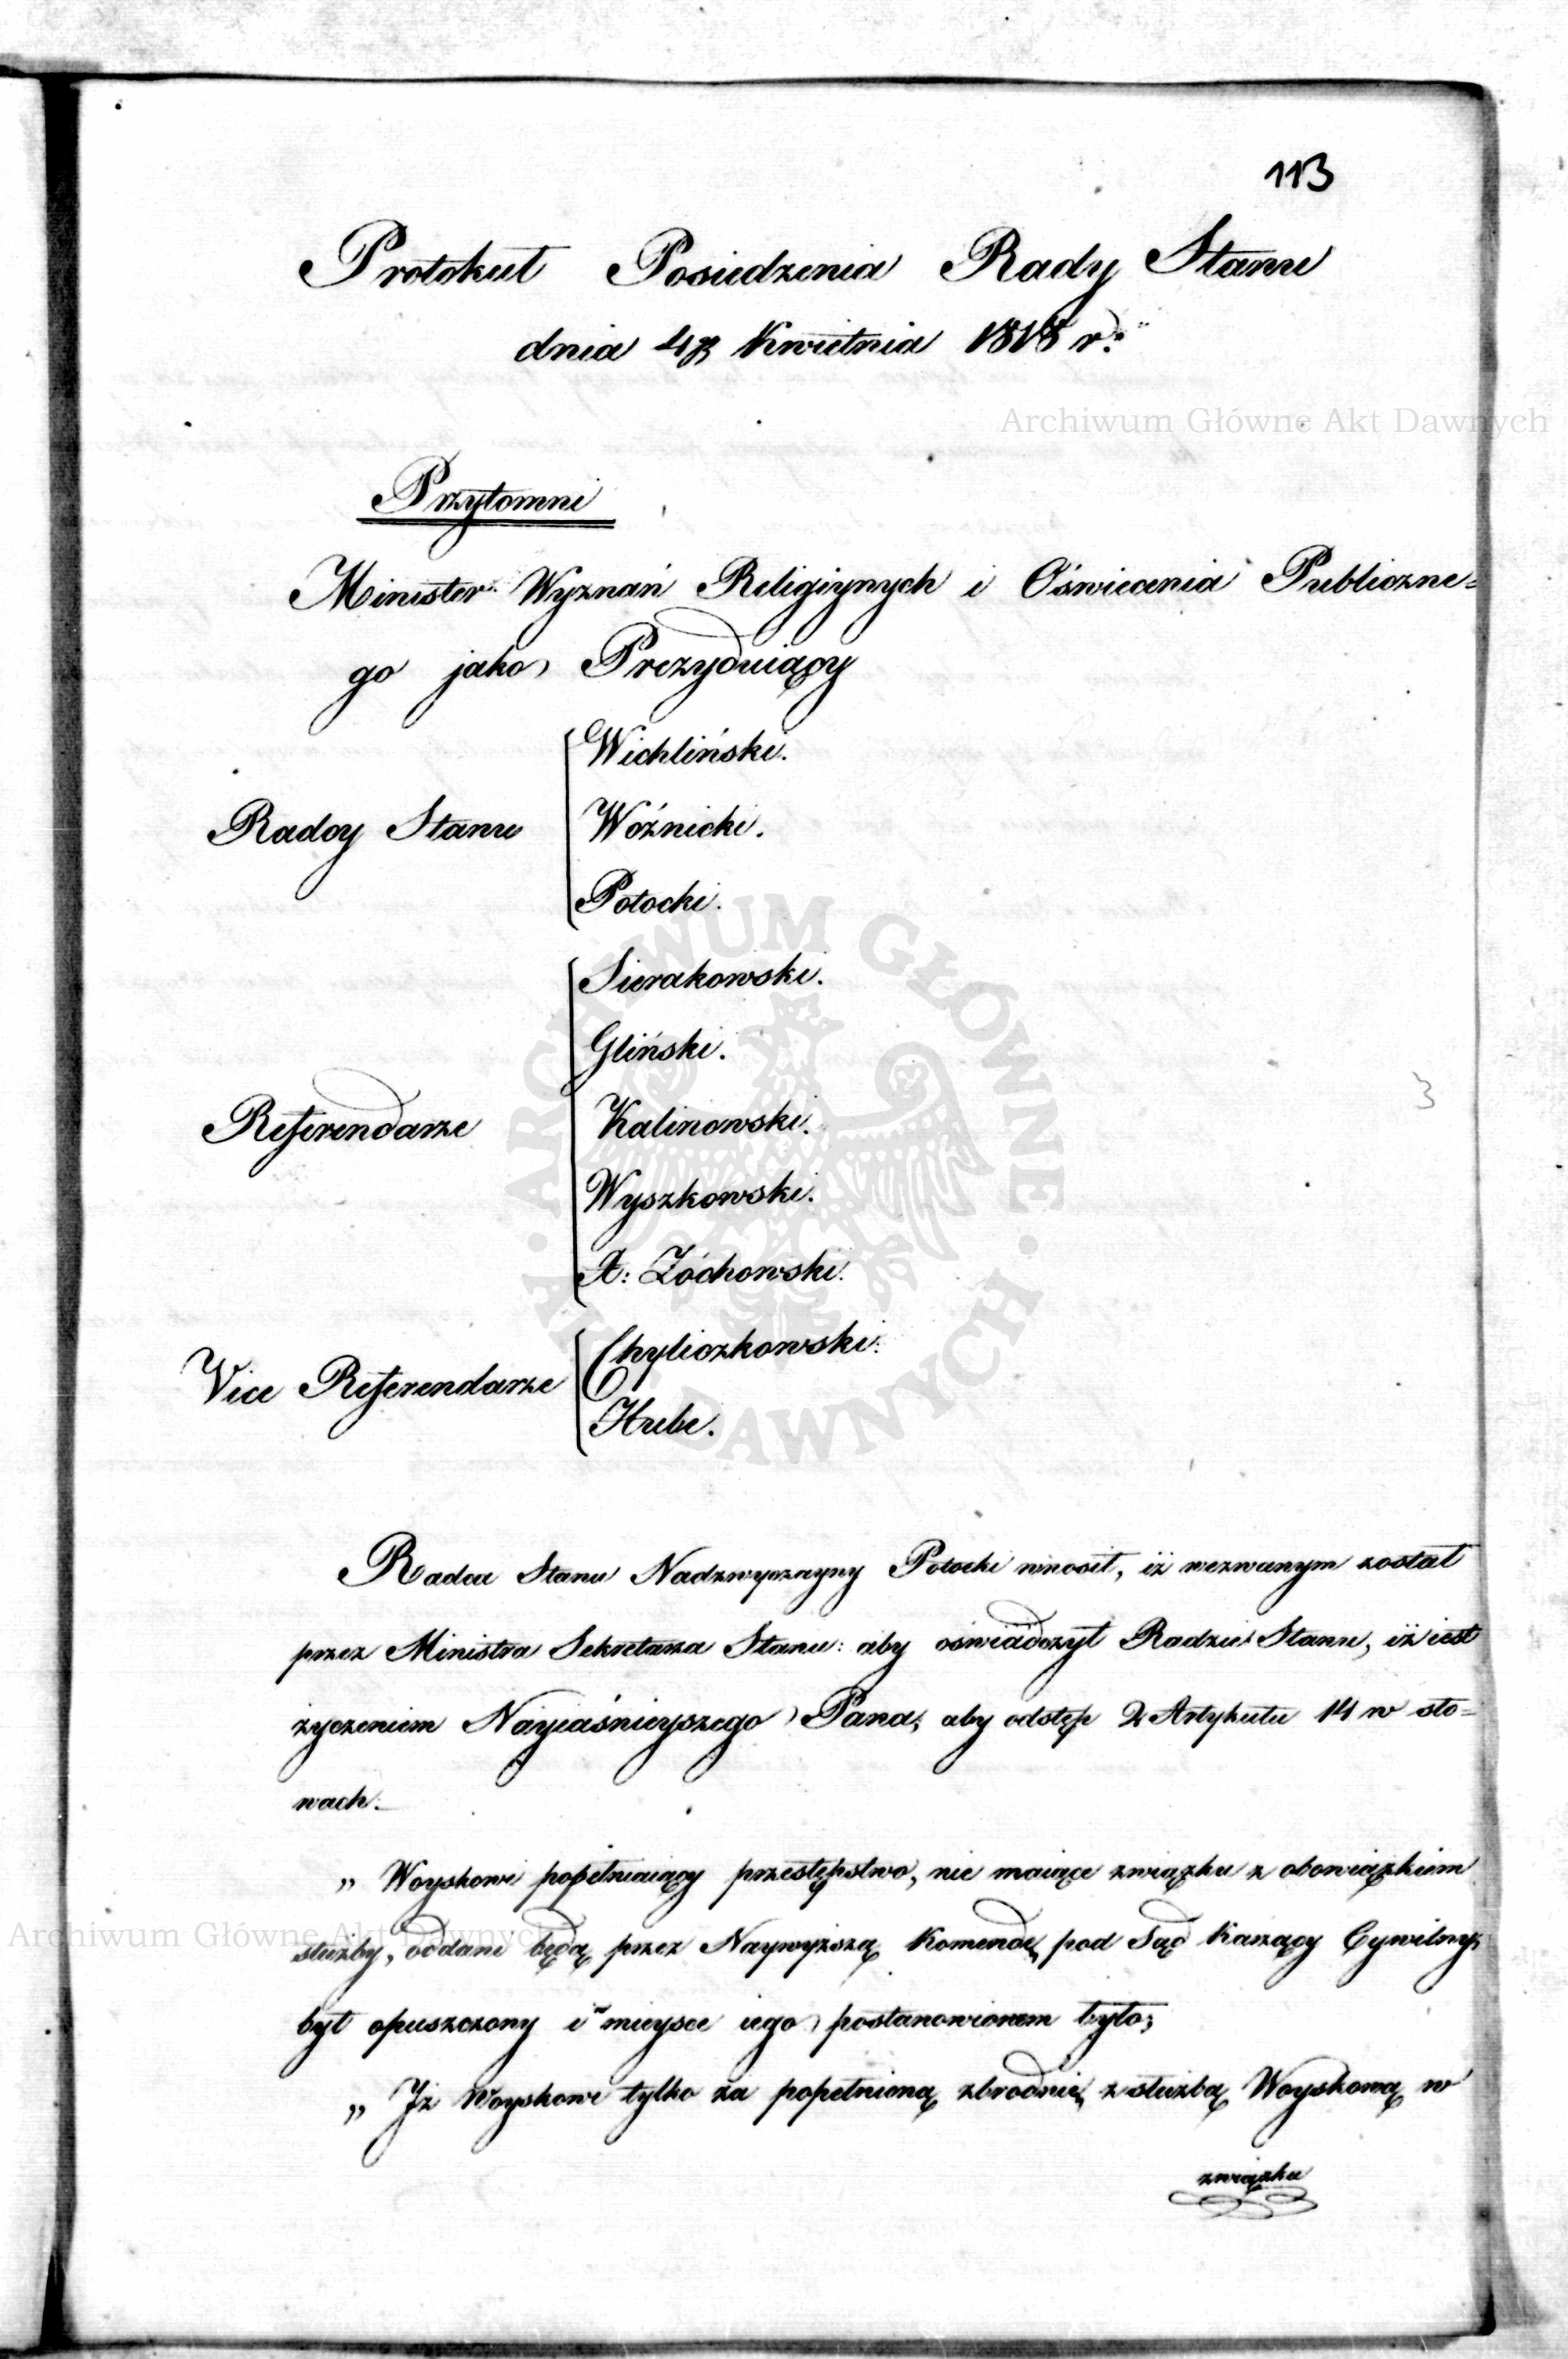 113
Protokuł Posiedzenia Rady Stanu
dnia 4go Kwietnia 1818 r:
Archiwum Główne Akt Dawnych
Przytomni
Minister Wyznań Religiynych i Oświecenia Publiczne=
go jako Prezyduiący
Wichliński.
Radcy Stanu
Woźnicki.
Potocki.
Sierakowski.
Gliński.
Referendarze
Kalinowski.
Wyszkowski.
A: Żóchowski.
Vice Referendarze
Chyliczkowski.
Hube.
ARCHIWUM GŁÓWNE AKT DAWNYCH
3
Radca Stanu Nadzwyczayny Potocki wnosił, iż wezwanym został
przez Ministra Sekretarza Stanu: aby oświadczył Radzie Stanu, iż iest
życzeniem Nayiaśnieyszego Pana, aby odstęp 2 Artykułu 14 w sło=
wach.
„ Woyskowi popełniaiący przestępstwo, nie maiące związku z obowiązkiem
służby, oddani będą przez Naywyższą Komendę pod Sąd Karzący Cywilny,
Archiwum Główne Akt Dawnych
był opuszczony i mieysce iego postanowionem było;
„ Iż Woyskowi tylko za popełnioną zbrodnię z służbą Woyskową w
związku